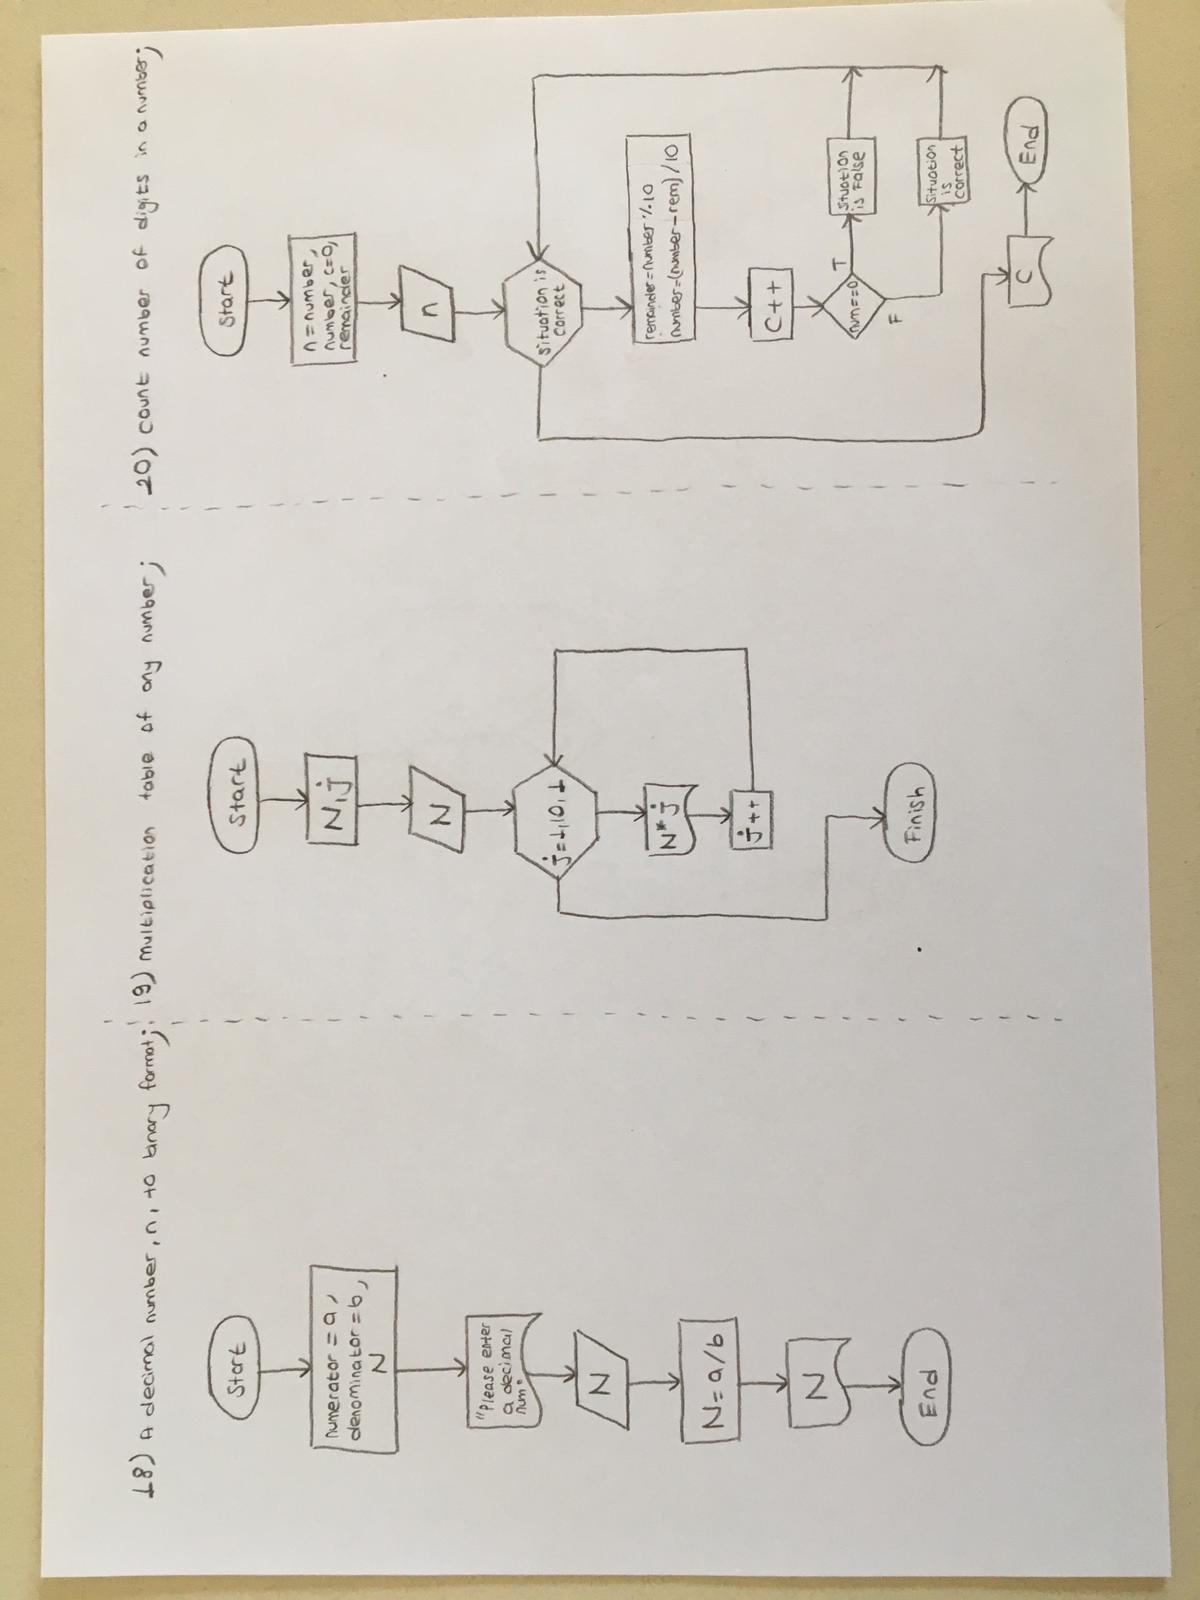 18) A decimal number, n, to binary format;
Start
numerator = a,
denominator = b,
N
"Please enter
a decimal
num"
N
N= a/b
N
End
19) multiplication table of any number;
Start
N, j
N
j=1,10,1
N* j
j++
Finish
20) count number of digits in a number;
Start
n = number,
number, c=0,
remainder
n
Situation is
correct
remainder = number % 10
number = (number - rem) / 10
C++
num==0
T
Situation
is False
F
Situation
is
correct
C
End